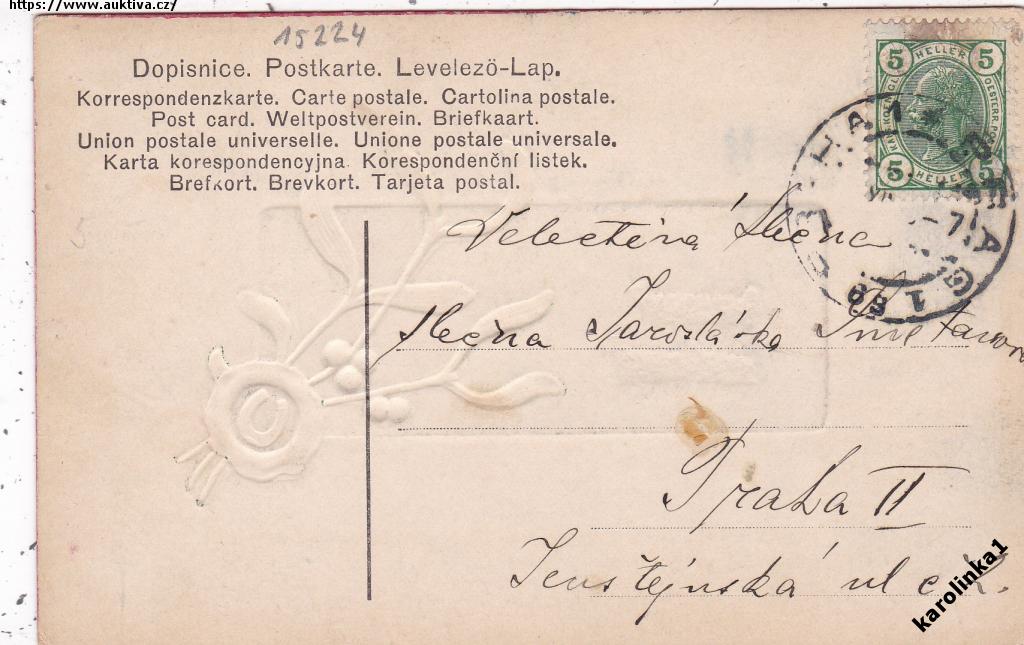 https://www.auktiva.cz/
15224
Dopisnice. Postkarte. Levelezö-Lap.
Korrespondenzkarte. Carte postale. Cartolina postale.
Post card. Weltpostverein. Briefkaart.
Union postale universelle. Unione postale universale.
Karta korespondencyjna. Korespondenční listek.
Brefkort. Brevkort. Tarjeta postal.
5 HELLER 5
5 HELLER 5
5
Velectěná slečna
slečna Jaroslávka
Praha II
Jenštejnská ul
karolinka1